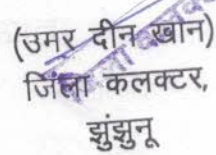 (उमर दीन खान)
जिला कलक्टर,
झुंझुनू